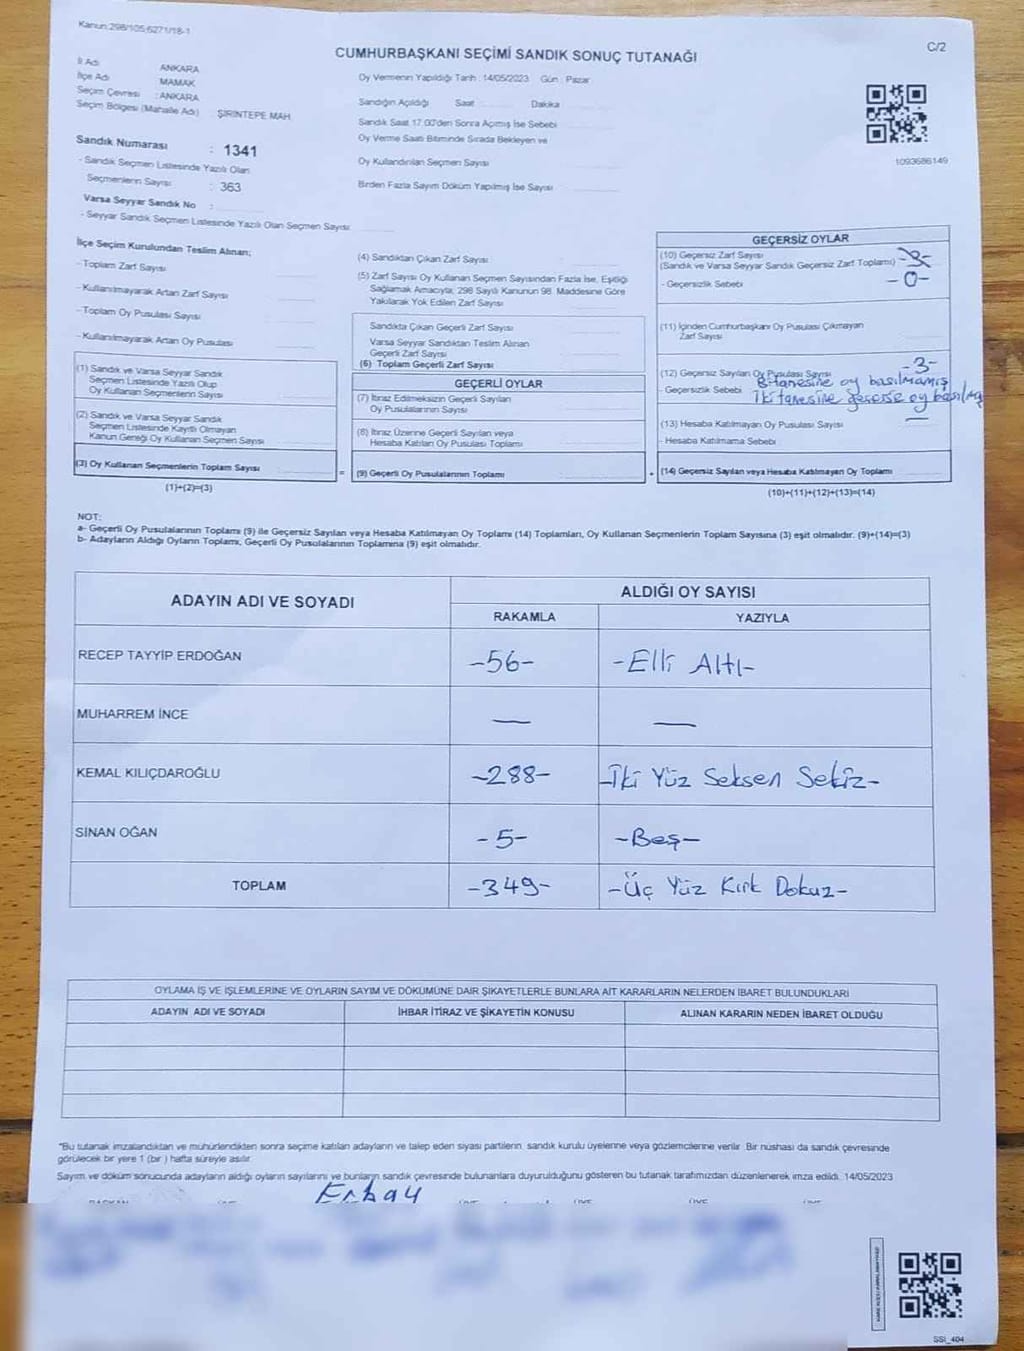 Kanun:298/105;6271/18-1
CUMHURBAŞKANI SEÇİMİ SANDIK SONUÇ TUTANAĞI
C/2
İl Adı ANKARA
İlçe Adı MAMAK
Seçim Çevresi : ANKARA
Seçim Bölgesi (Mahalle Adı) ŞİRİNTEPE MAH.
Oy Vermenin Yapıldığı Tarih : 14/05/2023 Gün : Pazar
Sandığın Açıldığı Saat Dakika
Sandık Saat 17.00'den Sonra Açılmış İse Sebebi
Oy Verme Saati Bitiminde Sırada Bekleyen ve
Oy Kullandırılan Seçmen Sayısı
Birden Fazla Sayım Döküm Yapılmış İse Sayısı
1093686149
Sandık Numarası : 1341
- Sandık Seçmen Listesinde Yazılı Olan
Seçmenlerin Sayısı : 363
Varsa Seyyar Sandık No :
- Seyyar Sandık Seçmen Listesinde Yazılı Olan Seçmen Sayısı
İlçe Seçim Kurulundan Teslim Alınan;
- Toplam Zarf Sayısı
- Kullanılmayarak Artan Zarf Sayısı
- Toplam Oy Pusulası Sayısı
- Kullanılmayarak Artan Oy Pusulası
(1) Sandık ve Varsa Seyyar Sandık
Seçmen Listesinde Yazılı Olup
Oy Kullanan Seçmenlerin Sayısı
(2) Sandık ve Varsa Seyyar Sandık
Seçmen Listesinde Kayıtlı Olmayan
Kanun Gereği Oy Kullanan Seçmen Sayısı
(3) Oy Kullanan Seçmenlerin Toplam Sayısı
(1)+(2)=(3)
(4) Sandıktan Çıkan Zarf Sayısı
(5) Zarf Sayısı Oy Kullanan Seçmen Sayısından Fazla İse, Eşitliği
Sağlamak Amacıyla, 298 Sayılı Kanunun 98. Maddesine Göre
Yakılarak Yok Edilen Zarf Sayısı
Sandıkta Çıkan Geçerli Zarf Sayısı
Varsa Seyyar Sandıktan Teslim Alınan
Geçerli Zarf Sayısı
(6) Toplam Geçerli Zarf Sayısı
GEÇERLİ OYLAR
(7) İtiraz Edilmeksizin Geçerli Sayılan
Oy Pusulalarının Sayısı
(8) İtiraz Üzerine Geçerli Sayılan veya
Hesaba Katılan Oy Pusulası Toplamı
= (9) Geçerli Oy Pusulalarının Toplamı
GEÇERSİZ OYLAR
(10) Geçersiz Zarf Sayısı
(Sandık ve Varsa Seyyar Sandık Geçersiz Zarf Toplamı) -3-
- Geçersizlik Sebebi -0-
(11) İçinden Cumhurbaşkanı Oy Pusulası Çıkmayan
Zarf Sayısı
(12) Geçersiz Sayılan Oy Pusulası Sayısı -3-
- Geçersizlik Sebebi Bitanesine oy basılmamış
İki tanesine oy
(13) Hesaba Katılmayan Oy Pusulası Sayısı —
- Hesaba Katılmama Sebebi
+ (14) Geçersiz Sayılan veya Hesaba Katılmayan Oy Toplamı
(10)+(11)+(12)+(13)=(14)
NOT:
a- Geçerli Oy Pusulalarının Toplamı (9) ile Geçersiz Sayılan veya Hesaba Katılmayan Oy Toplamı (14) Toplamları, Oy Kullanan Seçmenlerin Toplam Sayısına (3) eşit olmalıdır. (9)+(14)=(3)
b- Adayların Aldığı Oyların Toplamı, Geçerli Oy Pusulalarının Toplamına (9) eşit olmalıdır.
ADAYIN ADI VE SOYADI
ALDIĞI OY SAYISI
RAKAMLA YAZIYLA
RECEP TAYYİP ERDOĞAN -56- -Elli Altı-
MUHARREM İNCE — —
KEMAL KILIÇDAROĞLU -288- -İki Yüz Seksen Sekiz-
SİNAN OĞAN -5- -Beş-
TOPLAM -349- -Üç Yüz Kırk Dokuz-
OYLAMA İŞ VE İŞLEMLERİNE VE OYLARIN SAYIM VE DÖKÜMÜNE DAİR ŞİKAYETLERLE BUNLARA AİT KARARLARIN NELERDEN İBARET BULUNDUKLARI
ADAYIN ADI VE SOYADI İHBAR İTİRAZ VE ŞİKAYETİN KONUSU ALINAN KARARIN NEDEN İBARET OLDUĞU
*Bu tutanak imzalandıktan ve mühürlendikten sonra seçime katılan adayların ve talep eden siyasi partilerin sandık kurulu üyelerine veya gözlemcilerine verilir. Bir nüshası da sandık çevresinde
görülecek bir yere 1 (bir ) hafta süreyle asılır.
Sayım ve döküm sonucunda adayların aldığı oyların sayılarını ve bunların sandık çevresinde bulunanlara duyurulduğunu gösteren bu tutanak tarafımızdan düzenlenerek imza edildi. 14/05/2023
BAŞKAN ÜYE ÜYE ÜYE ÜYE
SSİ_404